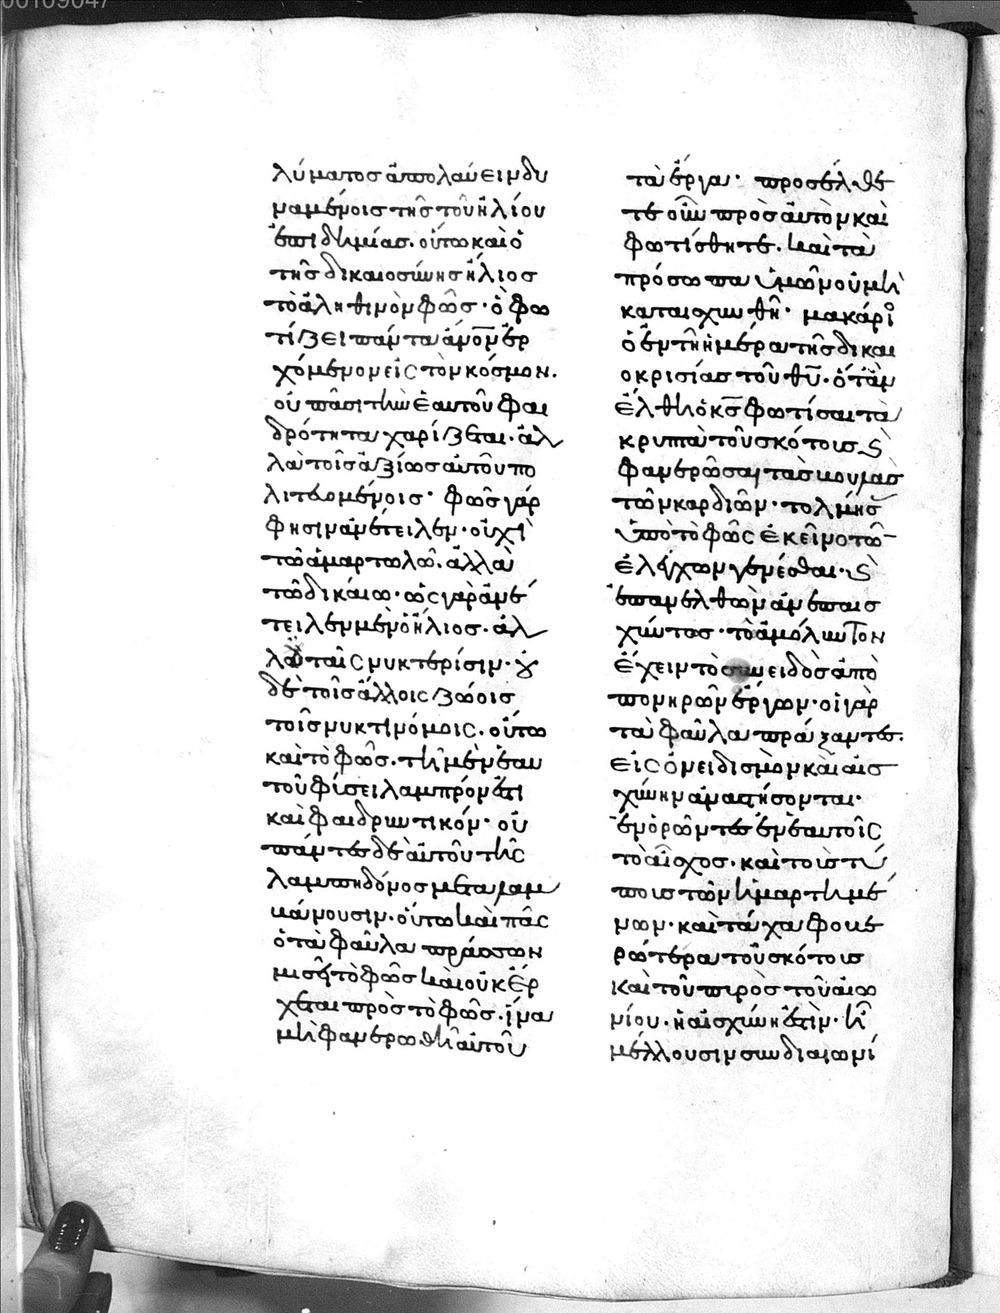 00109047
λύματος ἀπολαύειν δυ
ναμένοις τῆς τοῦ ἡλίου
ἐπιδημίας. οὕτω καὶ ὁ
τῆς δικαιοσύνης ἥλιος
τὸ ἀληθινὸν φῶς· ὃ φω
τίζει πάντα ἄνον ἐρ
χόμενον εἰς τὸν κόσμον.
οὐ πᾶσι τὴν ἑαυτοῦ φαι
δρότητα χαρίζεται· ἀλ
λὰ τοῖς ἀξίως αὐτοῦ πο
λιτευομένοις· φῶς γάρ
φησιν ἀνέτειλεν· οὐχὶ
τῶ ἁμαρτωλῶ. ἀλλὰ
τῶ δικαίω· ὡς γὰρ ἀνέ
τειλεν μὲν ὁ ἥλιος. ἀλ
λ' οὐ ταῖς νυκτερίσιν· οὐ
δὲ τοῖς ἄλλοις ζώοις
τοῖς νυκτινόμοις. οὕτω
καὶ τὸ φῶς. τῆ μὲν ἑαυ
τοῦ φύσει λαμπρόν ἐστι
καὶ φαιδρυντικόν· οὐ
πάντες δὲ αὐτοῦ τῆς
λαμπηδόνος μεταλαμ
βάνουσιν· οὕτω καὶ πᾶς
ὁ τὰ φαῦλα πράσσων
μισεῖ τὸ φῶς καὶ οὐκ ἔρ
χεται πρὸς τὸ φῶς. ἵνα
μὴ φανερωθῆ αὐτοῦ
τὰ ἔργα· προσέλθε
τε οὖν πρὸς αὐτὸν καὶ
φωτίσθητε. καὶ τὰ
πρόσωπα ὑμῶν οὐ μὴ
καταισχυνθῆ· μακάριο
ὁ ἐν τῆ ἡμέρα τῆς δικαι
οκρισίας τοῦ θυ. ὅταν
ἔλθη ὁ κς φωτίσαι τὰ
κρυπτὰ τοῦ σκότους ϗ
φανερῶσαι τὰς βουλὰς
τῶν καρδιῶν· τολμήσ
ὑπὸ τὸ φῶς ἐκεῖνο τῶ
ἐλέγχων γενέσθαι· ϗ
ἐπανελθὼν ἀνεπαισ
χύντως· τὸ ἀμόλυντον
ἔχειν τὸ συνειδὸς ἀπὸ
πονηρῶν ἔργων· οἱ γὰρ
τὰ φαῦλα πράξαντες.
εἰς ὀνειδισμὸν καὶ αἰσ
χύνην ἀναστήσονται·
ἐνορῶντες ἐν ἑαυτοῖς
τὸ αἶσχος. καὶ τοῖς τύ
ποις τῶν ἡμαρτημέ
νων· καὶ τάχα φοβε
ρώτερα τοῦ σκότους
καὶ τοῦ πυρὸς τοῦ αἰω
νίου. ἡ αἰσχύνη ἐστὶν· ἧ
μέλλουσιν συνδιαιωνί